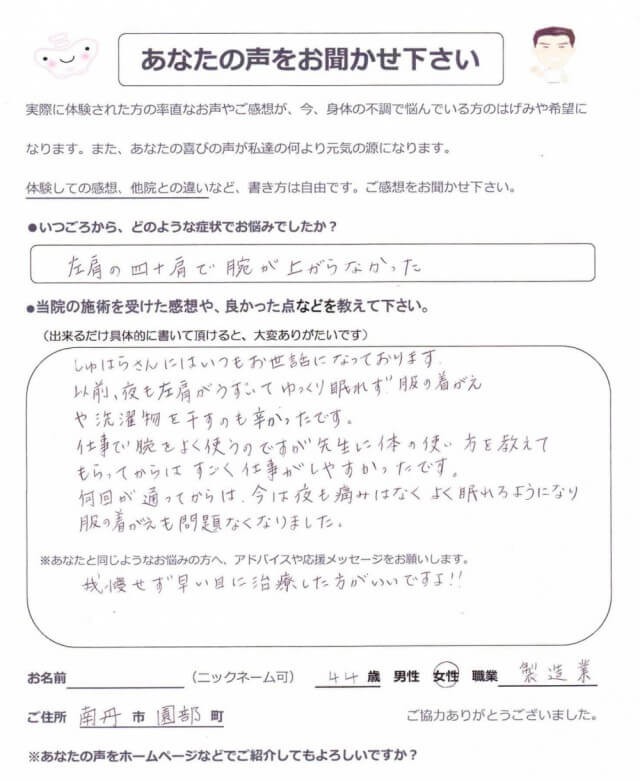 あなたの声をお聞かせ下さい
実際に体験された方の率直なお声やご感想が、今、身体の不調で悩んでいる方のはげみや希望に
なります。また、あなたの喜びの声が私達の何より元気の源になります。
体験しての感想、他院との違いなど、書き方は自由です。ご感想をお聞かせ下さい。
●いつごろから、どのような症状でお悩みでしたか？
左肩の四十肩で腕が上がらなかった
●当院の施術を受けた感想や、良かった点などを教えて下さい。
（出来るだけ具体的に書いて頂けると、大変ありがたいです）
しゅはらさんにはいつもお世話になっております
以前、夜も左肩がうずいてゆっくり眠れず服の着がえ
や洗濯物を干すのも辛かったです。
仕事で腕をよく使うのですが先生に体の使い方を教えて
もらってからはすごく仕事がしやすかったです。
何回か通ってからは、今は夜も痛みはなくよく眠れるようになり
服の着がえも問題なくなりました。
※あなたと同じようなお悩みの方へ、アドバイスや応援メッセージをお願いします。
我慢せず早い目に治療した方がいいですよ!!
お名前 （ニックネーム可） 44 歳 男性 女性 職業 製造業
ご住所 南丹 市 園部 町 ご協力ありがとうございました。
※あなたの声をホームページなどでご紹介してもよろしいですか？